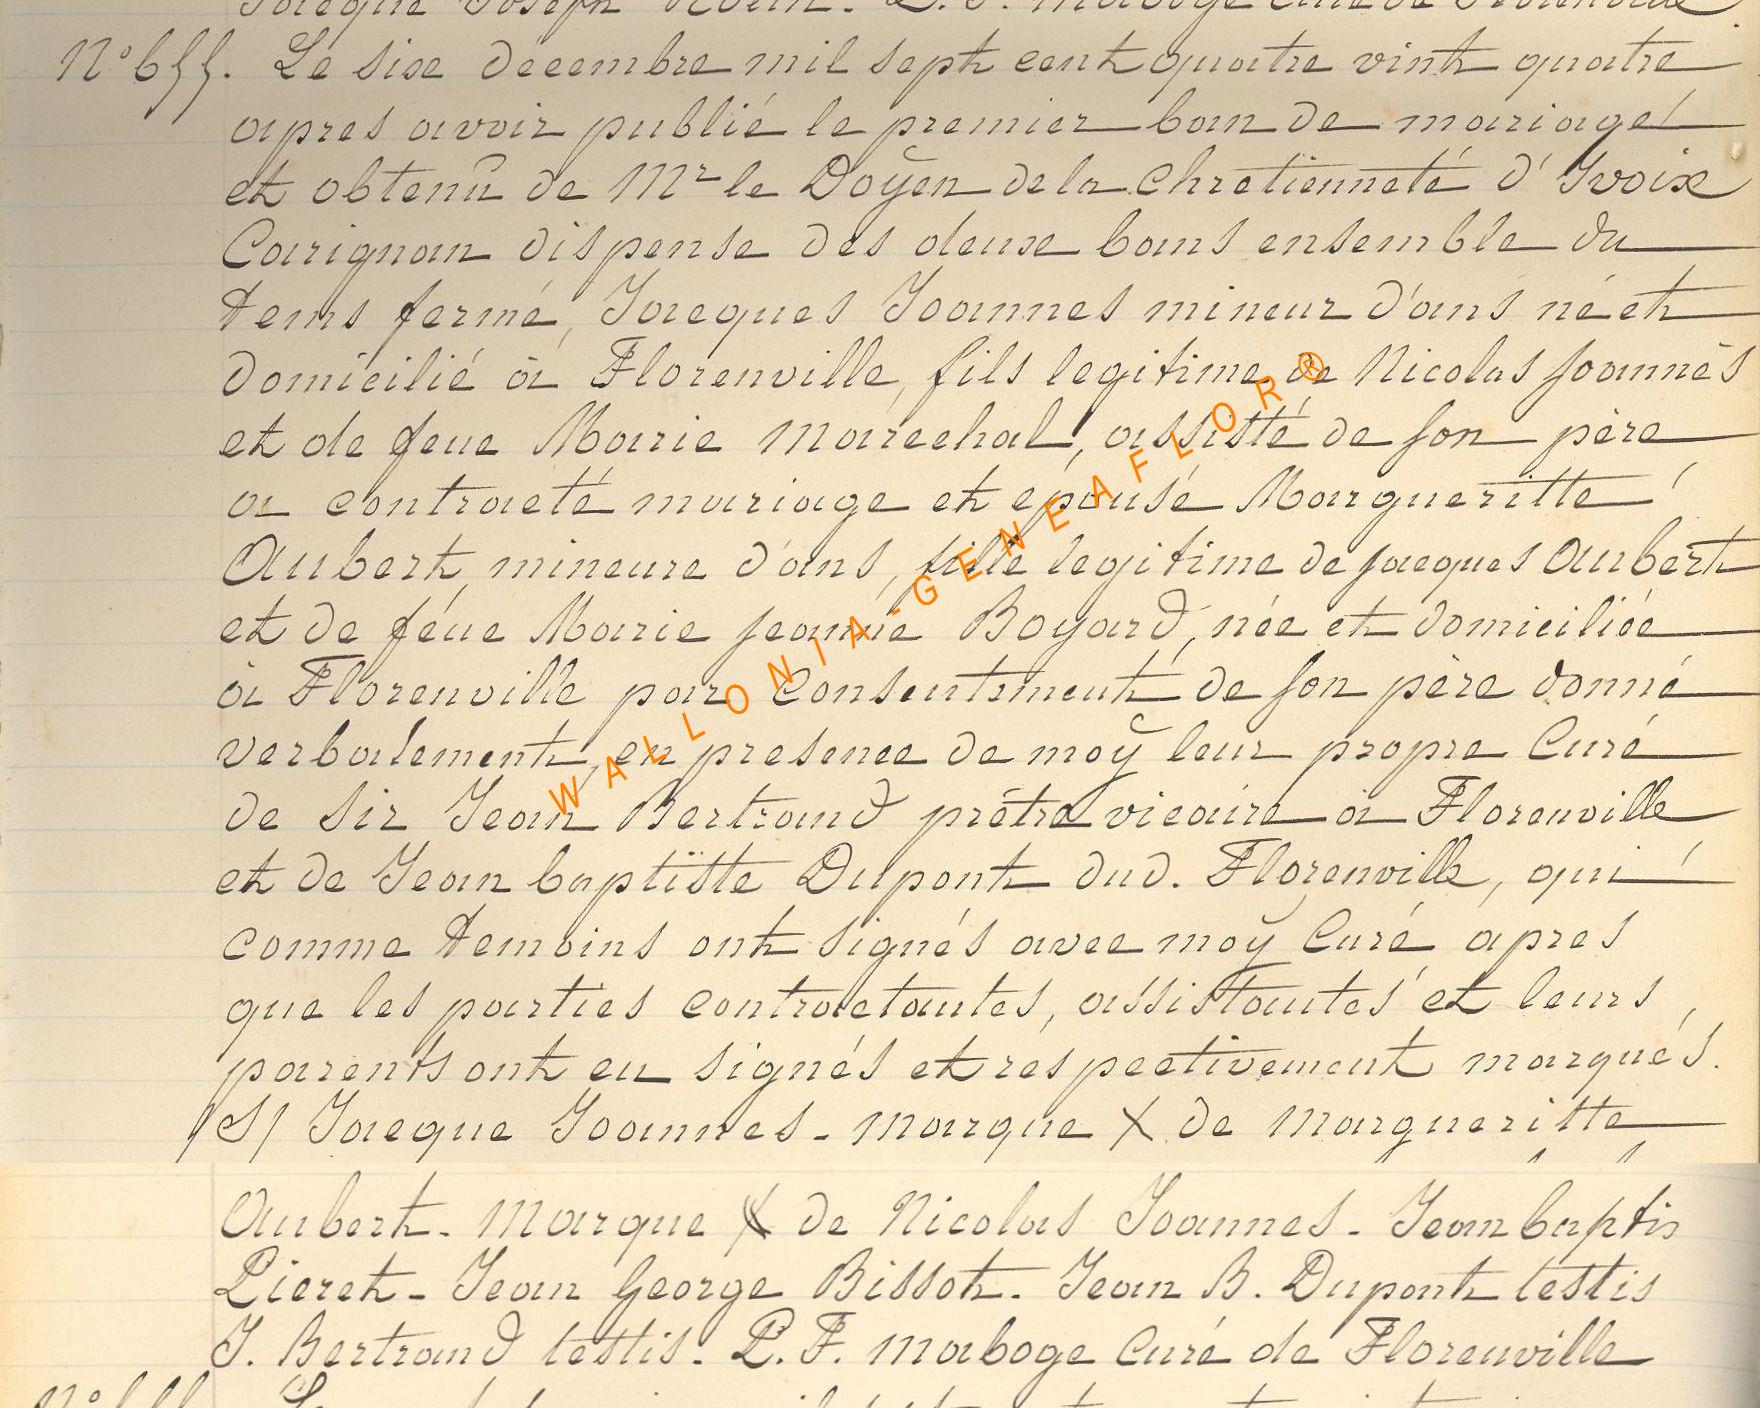 Jacque Joseph
N° 655. Le six decembre mil sept cent quatre vint quatre
apres avoir publié le premier ban de mariage
et obtenû de Mr le Doÿen de la chretienneté d'Ivoix
Carignan dispense des deux bans ensemble du
tems fermé, Jacques Joannes mineur d'ans né et
domicilié à Florenville, fils legitime de Nicolas Joannès
et de feue Marie Marechal, assisté de son père
a contracté mariage et épousé Margueritte
Aubert, mineure d'ans, fille legitime de Jacques Aubert
et de féue Marie Jeanne Boyard, née et domiciliée
à Florenville par consentement de son père donné
verbalement, en presence de moÿ leur propre Curé
de Sir Jean Bertrand prétre vicaire à Florenville
et de Jean baptiste Dupont dud. Florenville, qui
comme temoins ont signés avec moÿ Curé apres
que les parties contractantes, assistantes et leurs
parents ont eu signés et respectivement marqués.
/S/ Jacque Joannes - marque X de Margueritte
Aubert - Marque X de Nicolas Joannes - Jean baptis
Pieret - Jean George Bissot - Jean B. Dupont testis
J. Bertrand testis - P. F. Maboge Curé de Florenville
WALLONIA-GENEAFLOR®